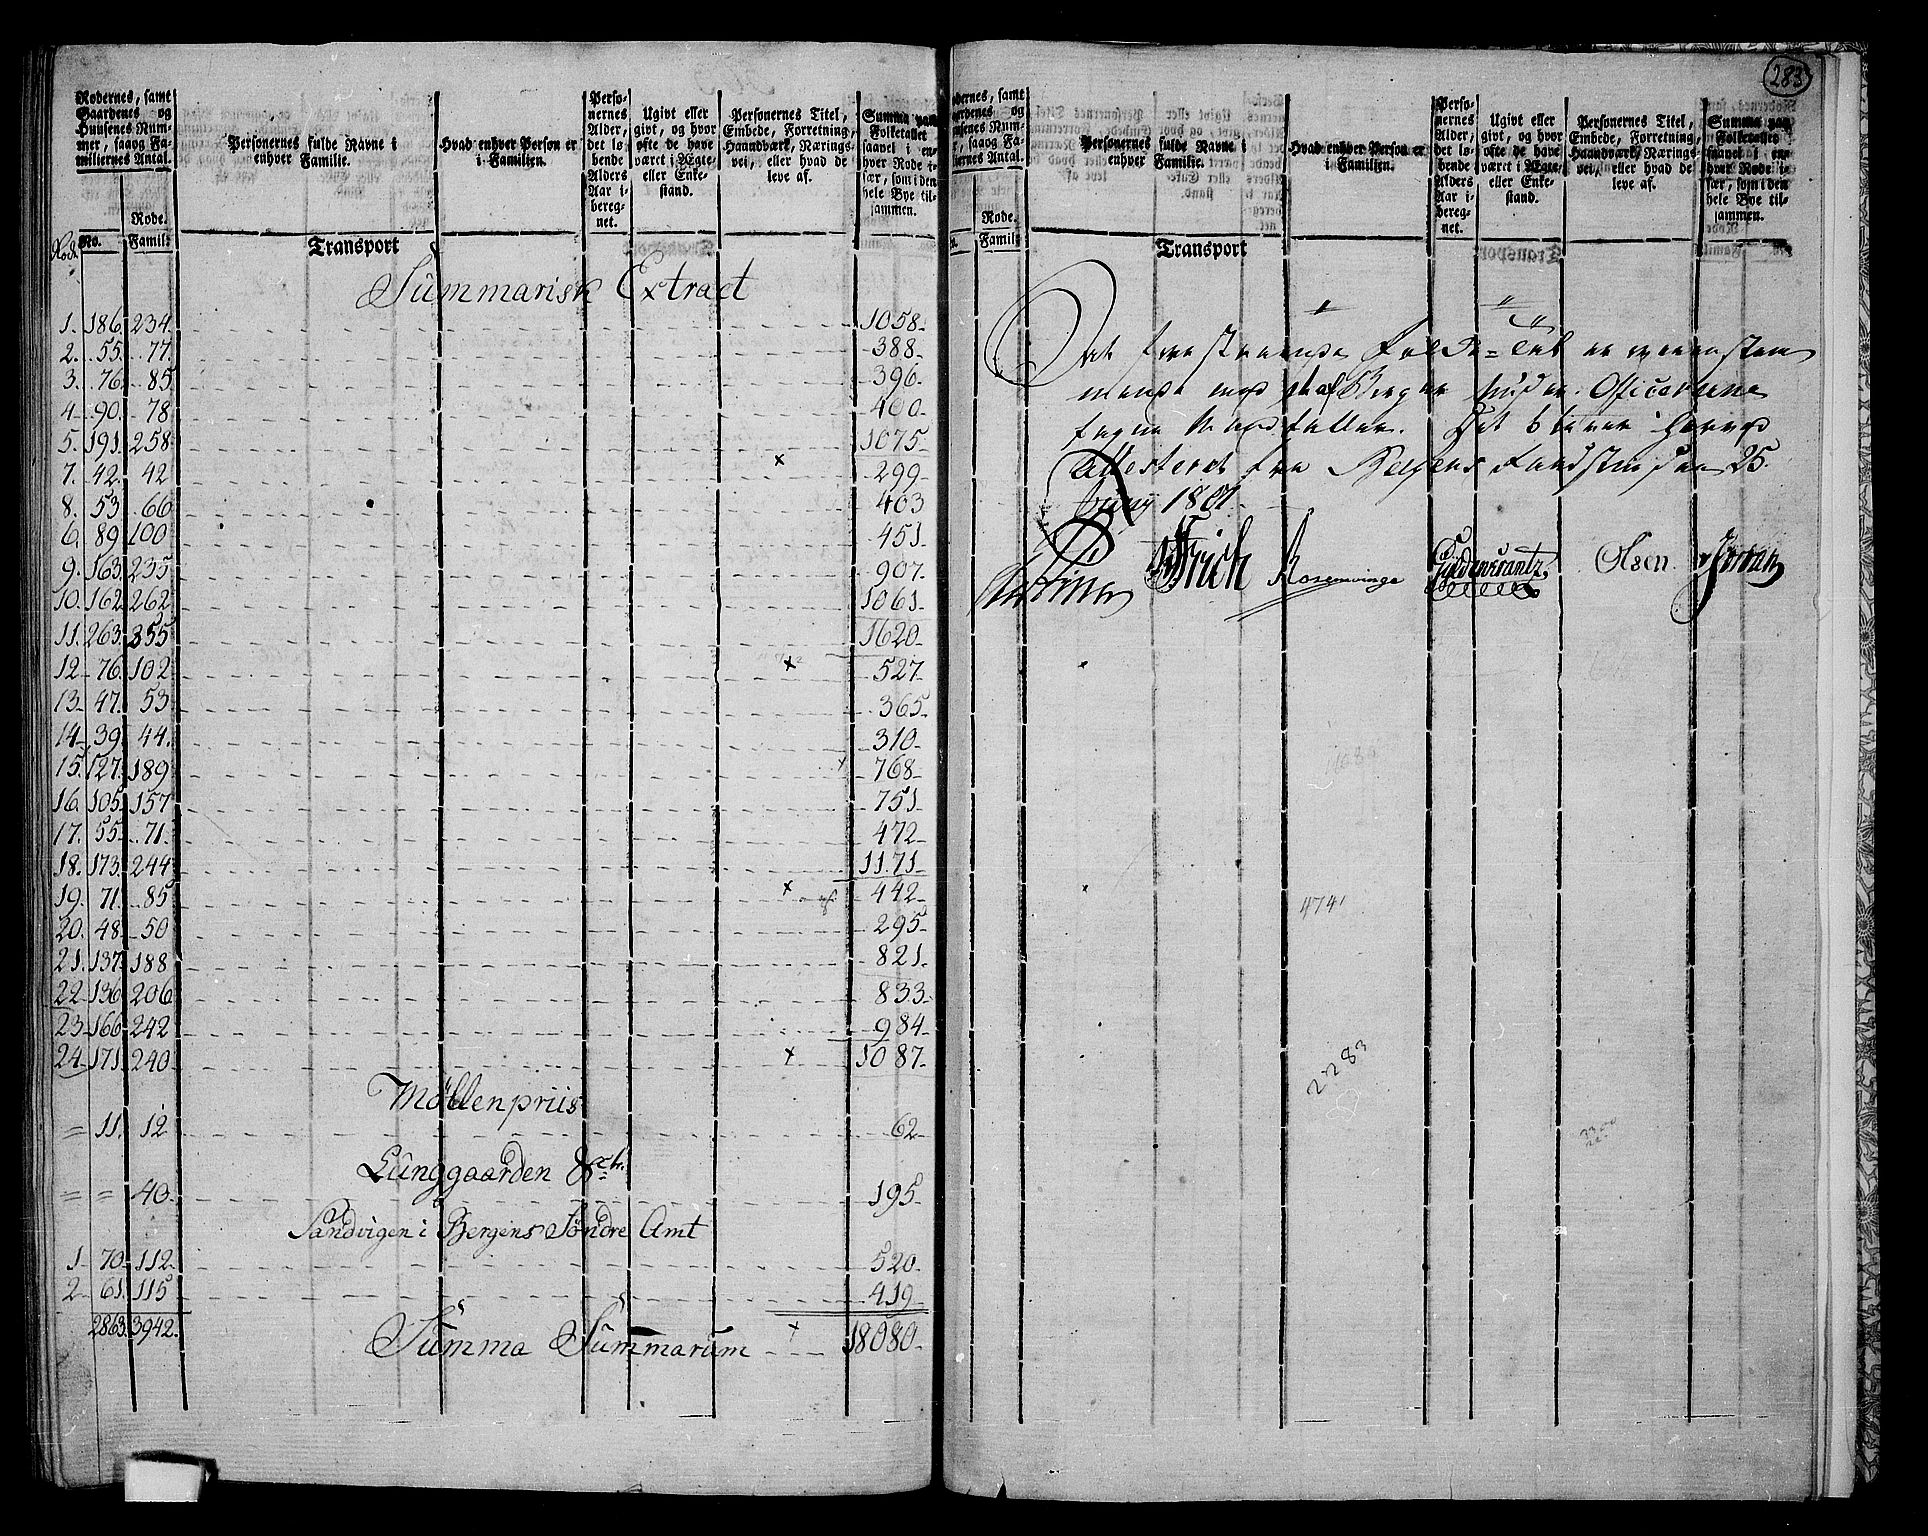 Rodernes, samt
Gaardenes og
Huusenes Num-
mer, saavog Fa-
miliernes Antal.
Personernes fulde Navne i
enhver Familie.
Hvad enhver Person er
i Familien.
Perso-
nernes
Alder,
det lø-
bende
Alders
Aar i-
bereg-
net.
Ugivt eller
givt, og hvor
ofte de have
været i Ægte-
eller Enke-
stand.
Personernes Titel,
Embede, Forretning,
Haandværk, Nærings-
vei, eller hvad de
leve af.
Summa paa
Folketallet
saavel i en-
hver Rode i-
sær, som i den
hele Bye til-
sammen.
Rode.
Rode No. Famil:
Transport
Summarisk Extract
1. 186. 234. 1058.
2. 55. 77. 388.
3. 76. 85. 396.
4. 90. 78. 400.
5. 191. 258. 1075.
7. 42. 42 x 299.
8. 53. 66 403
6. 89. 100 451.
9. 163. 235 907.
10. 162. 262 1061.
11. 263. 355 1620.
12. 76. 102 x 527.
13. 47. 53 365.
14. 39. 44. 310.
15. 127. 189 x 768.
16. 105. 157 751.
17. 55. 71. 472.
18. 173. 244 1171.
19. 71. 85 x 442.
20. 48. 50 295.
21. 137. 188 821.
22. 136. 206 833.
23. 166. 242 984.
24. 171. 240 x 1087.
Möllenpriis
= 11. 12 62.
Lunggaarden &c.
= = 40. 195.
Sandvigen i Bergens Søndre Amt
1. 70. 112 520.
2. 61. 115 419.
2863. 3942. Summa Summarum x 18080.
283
Rodernes, samt
Gaardenes og
Huusenes Num-
mer, saavog Fa-
miliernes Antal.
Personernes fulde Navne i
enhver Familie.
Hvad enhver Person er
i Familien.
Perso-
nernes
Alder,
det lø-
bende
Alders
Aar i-
bereg-
net.
Ugivt eller
givt, og hvor
ofte de have
været i Ægte-
eller Enke-
stand.
Personernes Titel,
Embede, Forretning,
Haandværk, Nærings-
vei, eller hvad de
leve af.
Summa paa
Folketallet
saavel i en-
hver Rode i-
sær, som i den
hele Bye til-
sammen.
Rode.
Famil:
Transport
At forestaaende Folke-Tal er overenstem
mende med de af Byens Officerene
Det bliver herved
Attesteret fra Bergens Raadstue den 25.
Juny 1801.
Frich Rosenvinge Gyldenkrantz Olsen
4741
2283